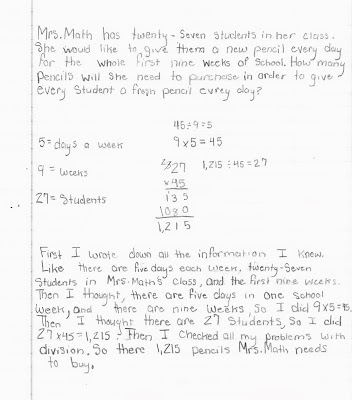 Mrs. Math has twenty-seven students in her class.
She would like to give them a new pencil every day
for the whole first nine weeks of school. How many
pencils will she need to purchase in order to give
every student a fresh pencil evrey day?
45÷9=5
5= days a week
9x5=45
9= weeks
27
1,215 ÷45=27
x45
27= Students
135
1080
1,215
First I wrote down all the information I know.
Like there are five days each week, twenty-seven
students in Mrs. Math's class, and the first nine weeks.
Then I thought, there are five days in one school
week, and there are nine weeks, so I did 9x5=45.
Then I thought there are 27 students, so I did
27x45=1,215. Then I checked all my problems with
division. So there 1,215 pencils Mrs. Math needs
to buy.